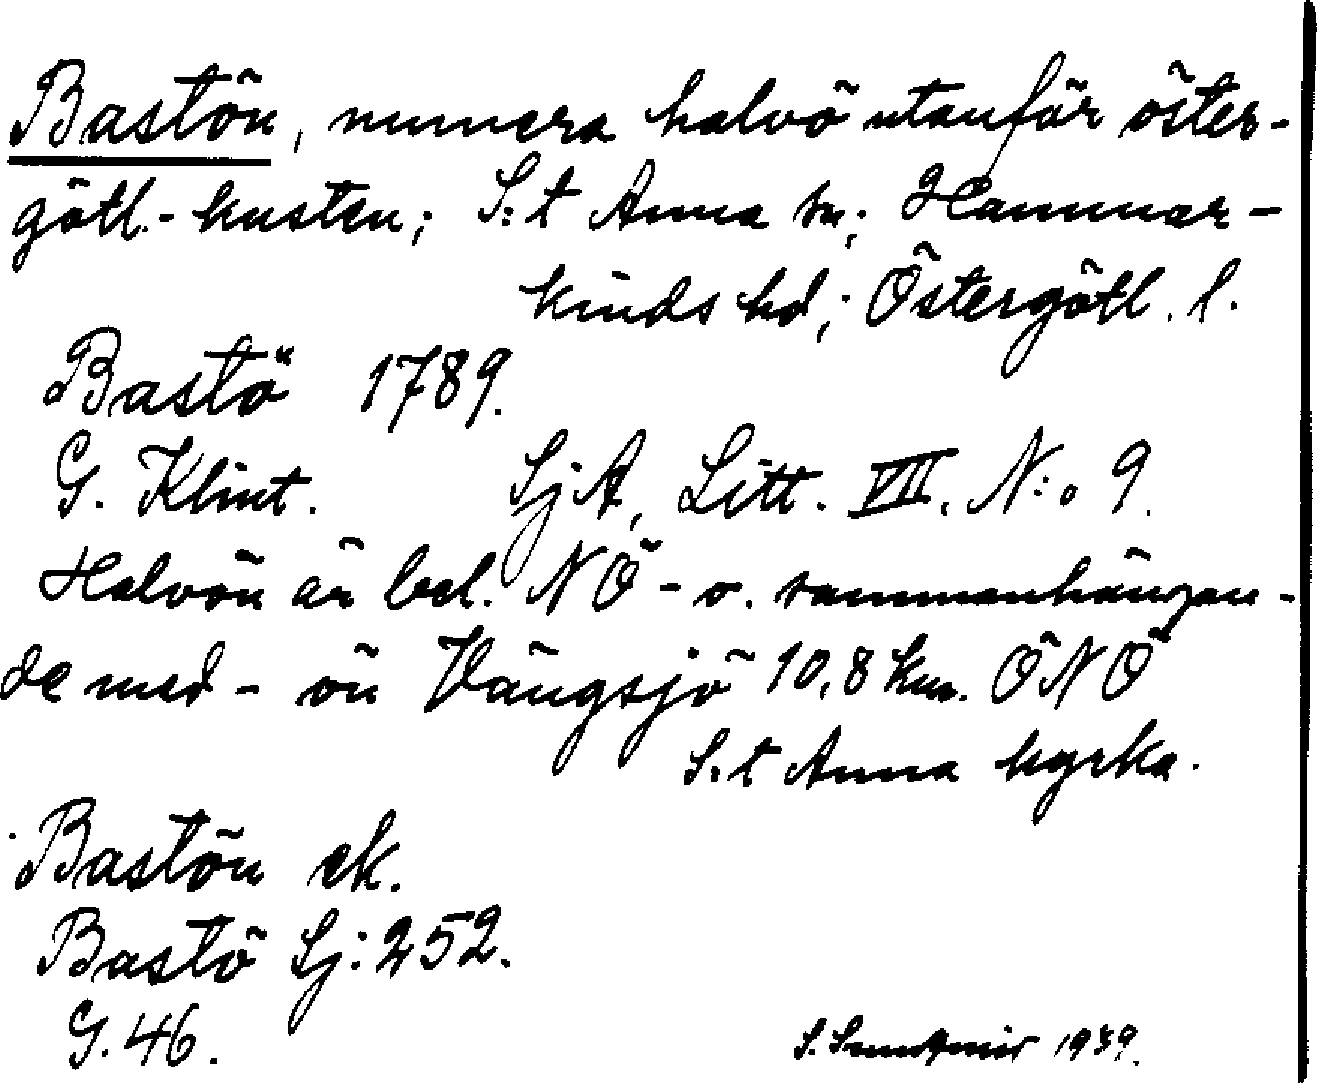 Bastön, numera halvö utanför öster-
götl.-kusten; S:t Anna sn; Hammar-
kinds hd; Östergötl. l.
Bastö 1789.
G. Klint. SjA, Litt. VII. N:o 9.
Halvön är bel. NÖ - o. sammanhängan-
de med - ön Vängsjö 10,8 km. ÖNÖ
S:t Anna kyrka.
Bastön ek.
Bastö Sj: 252.
G. 46.
S. 1939.